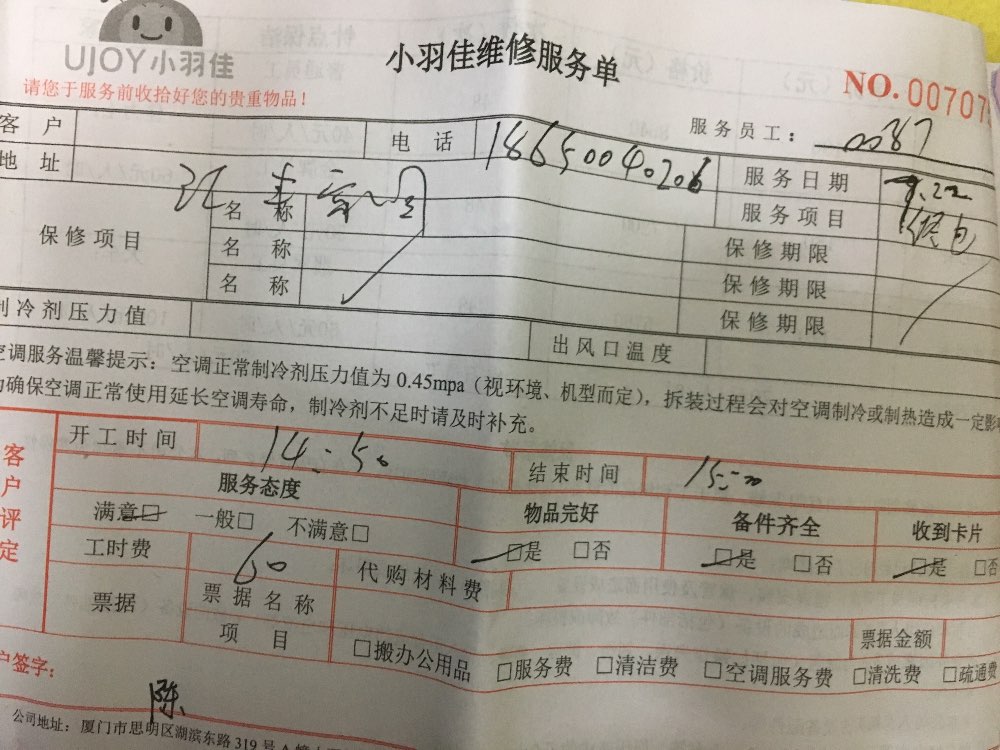 UJOY小羽佳
小羽佳维修服务单
NO. 00707
请您于服务前收拾好您的贵重物品！
服务员工： 0087
客户 电话 18650040206
地址 服务日期 9.22
服务项目
保修项目 名称 保修期限
名称 保修期限
名称 保修期限
制冷剂压力值 出风口温度
空调服务温馨提示：空调正常制冷剂压力值为 0.45mpa（视环境、机型而定），拆装过程会对空调制冷或制热造成一定影
为确保空调正常使用延长空调寿命，制冷剂不足时请及时补充。
客户评定
开工时间 14:50 结束时间 15:20
服务态度 物品完好 备件齐全 收到卡片
满意□ 一般□ 不满意□ □是 □否 □是 □否 □是 □否
工时费 60 代购材料费
票据 票据名称 票据金额
项目 □搬办公用品 □服务费 □清洁费 □空调服务费 □清洗费 □疏通费
户签字： 陈
公司地址：厦门市思明区湖滨东路 319 号 A 幢